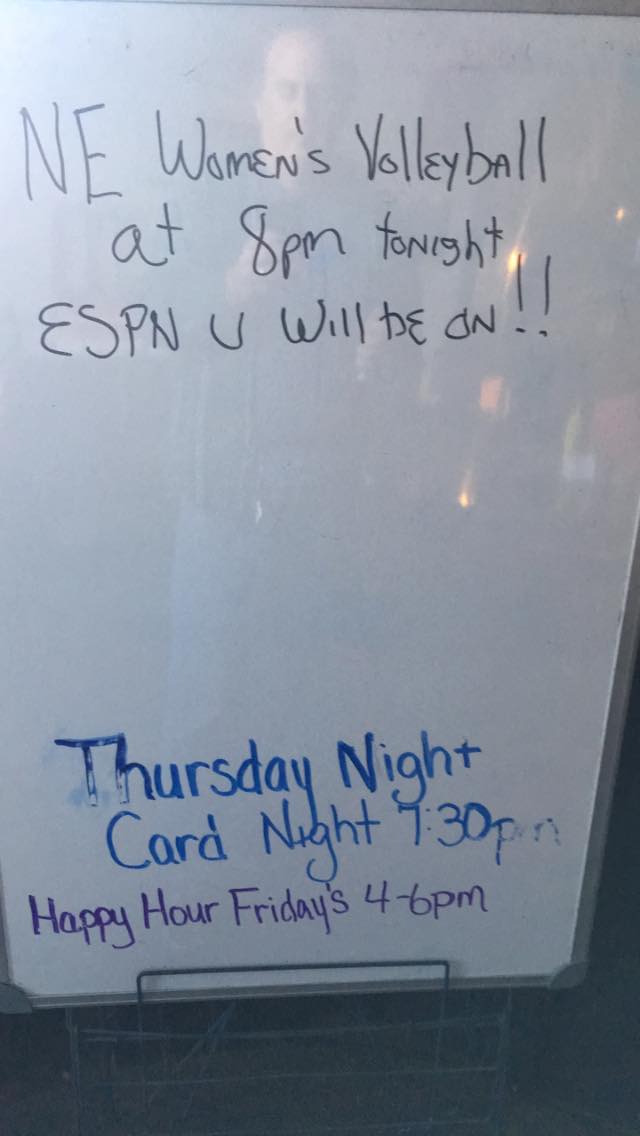 NE Women's Volleyball
at 8pm tonight
ESPN U Will be on!!
Thursday Night
Card Night 7:30pm
Happy Hour Friday's 4-6pm